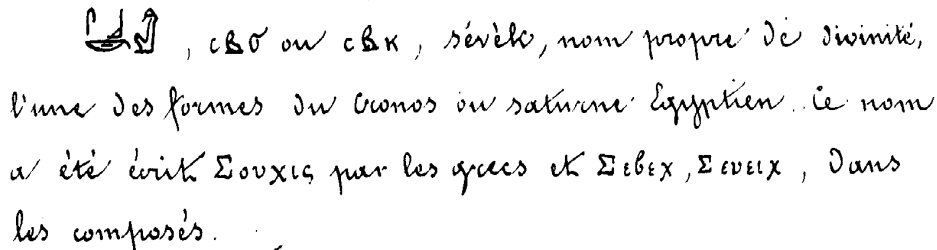 , ⲥⲃϭ ou ⲥⲃⲕ, sévék, nom propre de divinité,
l'une des formes du Cronos ou saturne Egyptien. Ce nom
a été écrit Σουχις par les grecs et Σεβεχ, Σευειχ, dans
les composés.